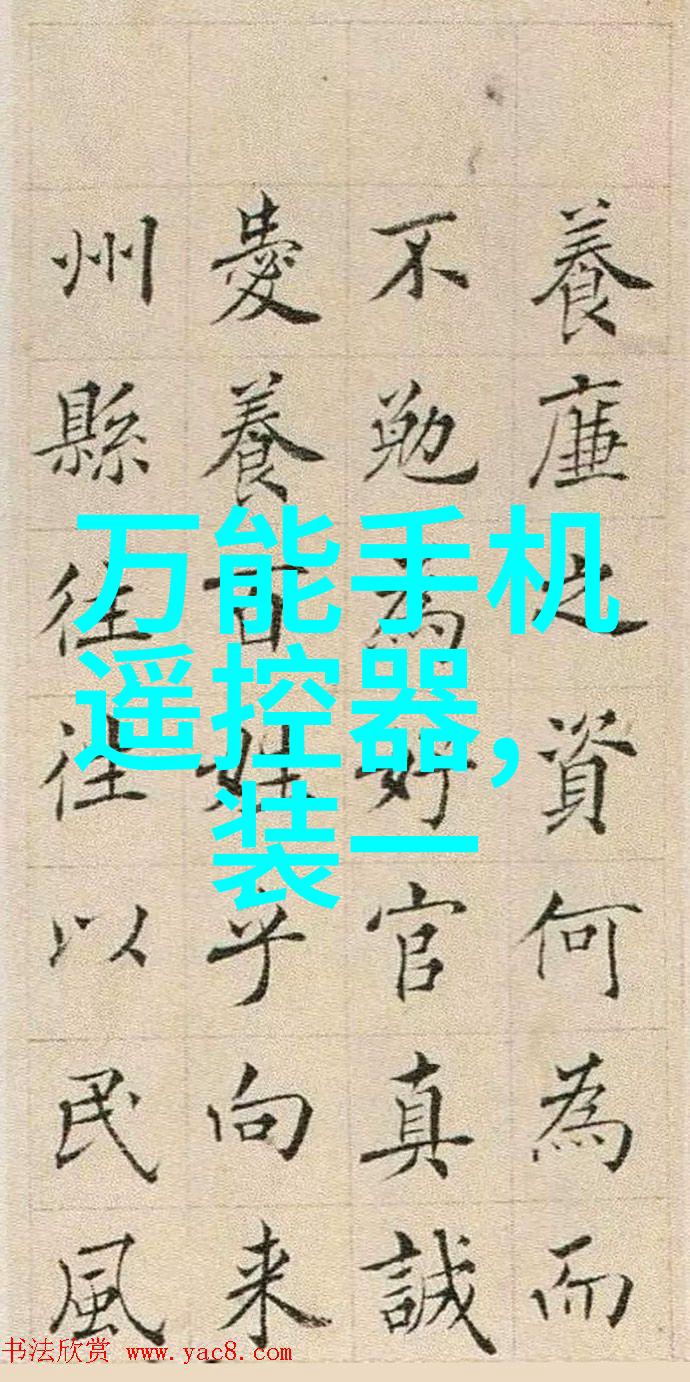 養廉之資何為而
不勉為好官真誠
愛養百姓乎向来
州縣往往以民風
万能手机
遥控器,
装一
书法欣赏 www.yac8.com